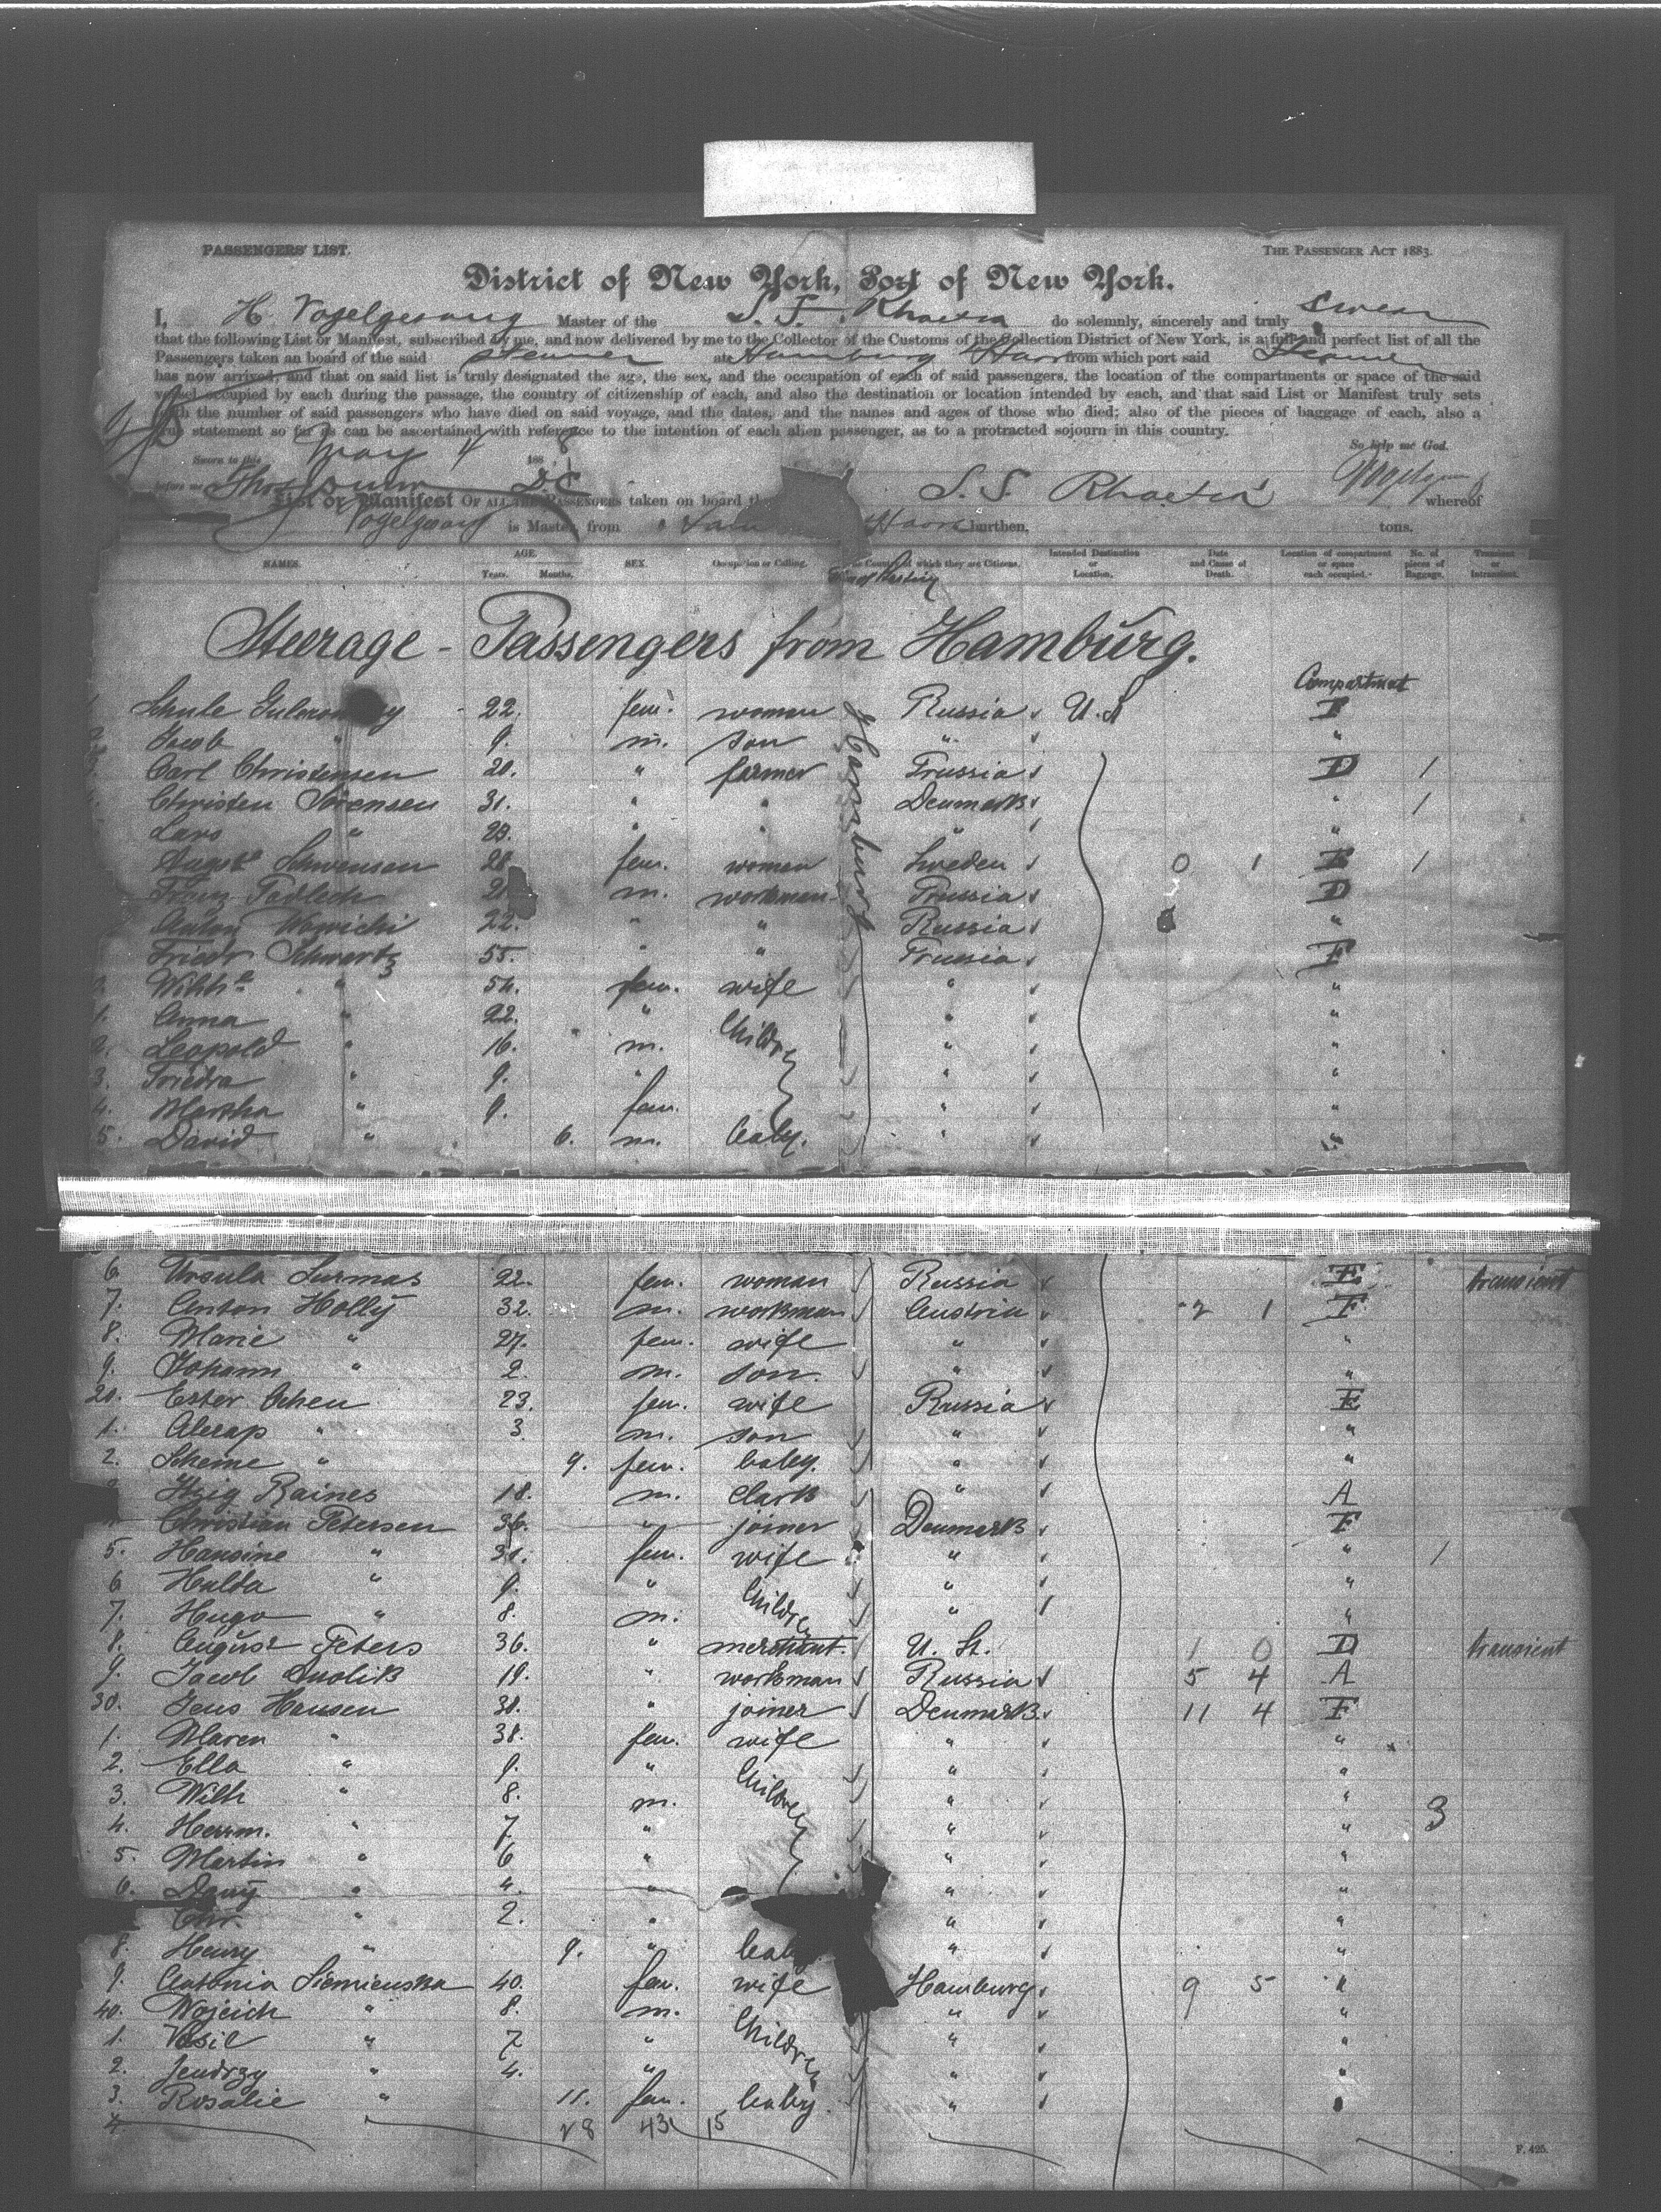 PASSENGERS' LIST. THE PASSENGER ACT 1883.
District of New York, Port of New York.
I, H. Vogelgesang Master of the S. S. Rhaetia do solemnly, sincerely and truly swear
that the following List or Manifest, subscribed by me, and now delivered by me to the Collector of the Customs of the Collection District of New York, is a full and perfect list of all the
Passengers taken on board of the said steamer at Hamburg Havre from which port said Steamer
has now arrived; and that on said list is truly designated the age, the sex, and the occupation of each of said passengers, the location of the compartments or space of the said
vessel occupied by each during the passage, the country of citizenship of each, and also the destination or location intended by each, and that said List or Manifest truly sets
forth the number of said passengers who have died on said voyage, and the dates, and the names and ages of those who died; also of the pieces of baggage of each, also a
true statement so far as can be ascertained with reference to the intention of each alien passenger, as to a protracted sojourn in this country.
So help me God.
Sworn to this May 4 1888
before me
List or Manifest OF ALL THE PASSENGERS taken on board the S. S. Rhaetia whereof
Vogelgesang is Master, from Havre burthen, tons.
NAMES. AGE. Years. Months. SEX. Occupation or Calling. The Country of which they are Citizens. Intended Destination or Location. Date and Cause of Death. Location of compartment or space each occupied. No. of pieces of Baggage. Transient or Intransient.
Steerage - Passengers from Hamburg.
Compartment
22. fem. woman Russia U. S
Jacob " 9. m. son " "
Carl Christensen 20. " farmer Prussia D 1
Christen Sörensen 31. " " Denmark " 1
Lars " 23. " " " "
Hamburg
Schwensen 28 fem. women Sweden 0 1 E 1
Franz m. workman Prussia D
Anton 22. " " Russia "
Friedr Schwartz 55. " " Prussia F
Wilhe " 54. fem. wife " "
1. Anna " 22. " Children " "
2. Leopold " 16. m. " "
3. Friedra " 9. " " "
4. Martha " 9. fem. " "
5. David " 6. m. baby. " "
6 Ursula Surmas 22. fem. woman Russia E transient
7. Anton Holly 32. m. workman Austria 2 1 F
8. Marie " 27. fem. wife " "
9. Johann " 2. m. son. " "
20. Ester 23. fem. wife Russia E
1. " 3. m. son " "
2. Scheine " 9. fem. baby. " "
Raines 18. m. Clark " A
Christian Petersen 36. " joiner Denmark F
5. Hansine " 31. fem. wife " " 1
6 Hulda " 9. " Children " "
7. Hugo " 8. m. " "
8. August Peters 36. " merchant. U. St. 1 0 D transient
9. Jacob 19. " workman Russia 5 4 A
30. Jens Hansen 38. " joiner Denmark 11 4 F
1. Maren " 38. fem. wife " "
2. Ella " 9. " Children " "
3. Wilh " 8. m. " " 3
4. Herrm. " 7 " " "
5. Martin " 6 " " "
6. " 4. " " "
Chr. " 2. " " "
8. Henry " 9. " baby " "
9. Antonia Siemienska 40. fem. wife Hamburg 9 5 "
40. Wojcich " 8. m. Children " "
1. " 7 " " "
2. Jendrzy " 4. " " "
3. Rosalie " 11. fem. baby. " "
4
28 43 15
F. 425.